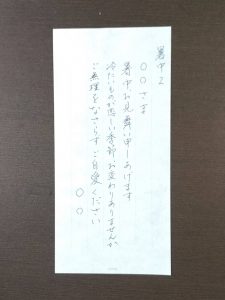 暑中2
○○さま
暑中お見舞い申しあげます
冷たいものが恋しい季節お変わりありませんか
ご無理をなさらずご自愛ください
○○